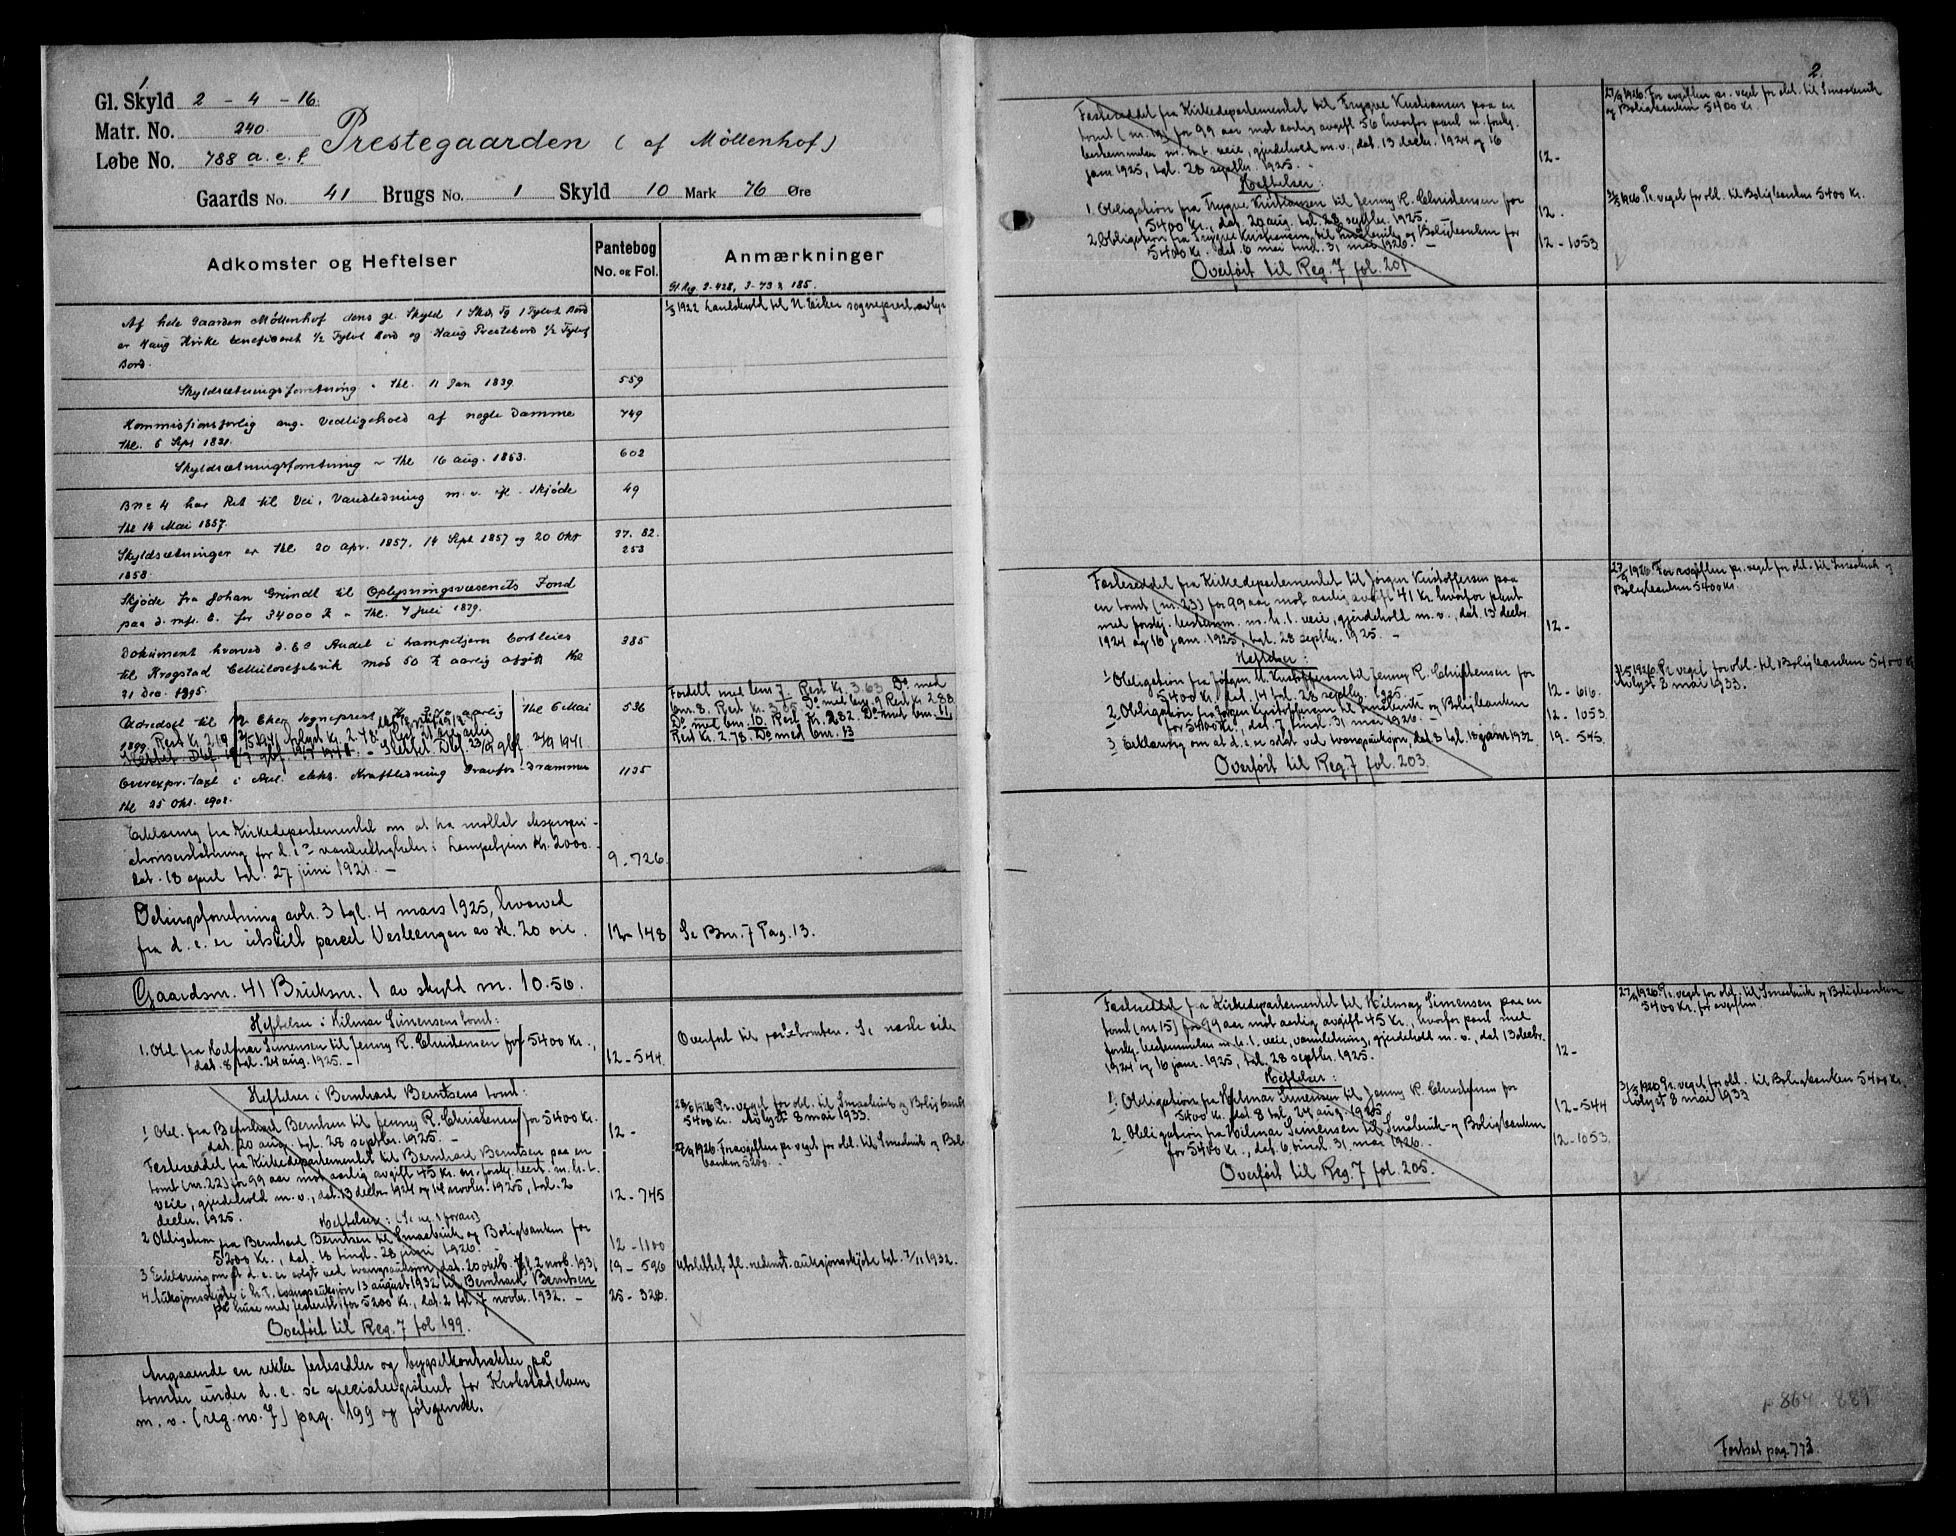 1
Gl. Skyld 2 - 4 - 16
Matr. No. 240.
Løbe No. 788 a. e. f
Prestegaarden (af Møllenhof)
Gaards No. 41 Brugs No. 1 Skyld 10 Mark 76 Øre
Adkomster og Heftelser
Pantebog
No. og Fol.
Anmærkninger
Gl. Reg. 2-428, 3-73 & 185.
Af hele Gaarden Møllenhof dens gl. Skyld 1 Skd, Tg 1 Tylvt Bord
er Haug Kirke beneficeret 1/2 Tylvt Bord og Haug Prestebord 1/2 Tylvt
Bord.
1922 Landskyld til N. Eiker sogneprest avlyst
Skyldsætningsforretning - thl. 11 Jan 1839.
559
Kommissionsforlig ang. Vedligehold af nogle Damme
749
thl. 6 Sept 1831.
Skyldsætningsforretning - thl 16 aug. 1853.
602
Bno 4 har Ret til Vei, Vandledning m.v. efl. Skjøde
49
thl 14 Mai 1857.
Skyldsætninger er thl 20 apr. 1857, 14 Sept 1857 og 20 Okt
1858.
37. 82.
253
Skjøde fra Johan Gründl til Oplysningsvæsenets Fond
paa d. mfl. E. for 34000 - thl. 7 Juli 1879.
Dokument hvorved d. Es Andel i Lampetjern bortleies
385
til Krogstad Cellulosefabrik mod 50 aarlig afgift thl
21 Dec. 1895.
Udredsel til N. Eker Sogneprest aarlig thl 6 Mai
536
1899 Rest Kr. 2.19
Fordelt med bnr 7 Rest Kr. 3.63 Do med
bnr. 8. Rest Kr. Do med bnr. 9 Rest Kr. 2.88
Do med bnr. 10 Rest Kr. 2.82. Do med bnr. 11
Rest Kr. 2.78. Do med bnr. 13
Slettet. 1941
Overexpr. taxt i Anl. elekt. Kraftledning Gravfos - Drammen
1135
thl 25 Okt. 1902.
Erklæring fra Kirkedepartementet om at ha mottat ekspropri-
ationserstatning for d. es vandrettigheter i Lampetjern Kr. 2000.-
dat. 18 april tgl. 27 juni 1921. -
9 - 726
Delingsforretning avh. 3 tgl. 4 mars 1925, hvorved
fra d. e. er utskilt parcel Vesleengen av sk. 20 øre.
12 - 148
Se Bnr. 7 Pag. 13.
Gaardsnr. 41 Bruksnr. 1 av skyld m. 10.56.
Heftelser i Hilmar Simensens tomt:
1. Obl. fra Hilmar Simensen til Jenny R. Christensen for 5400 Kr.,
dat. 8 tgl. 24 aug. 1925. -
12 - 544
Overført til Se neste side
Heftelser i Bernhard Berntsens tomt:
1 Obl. fra Bernhard Berntsen til Jenny R. Christensen for 5400 Kr.
dat. 20 aug. tgl. 28 septbr. 1925. -
12 -
1926 Pr. veget for obl. til Smaabruk og Boligbanken
5400 Kr. Avlyst 8 mai 1933.
Festeseddel fra Kirkedepartementet til Bernhard Berntsen paa en
tomt (nr. 22) for 99 aar mot aarlig avgift 45 kr. m. forskj. best. m. h. t.
veie, gjerdehold m. v., dat. 13 decbr 1924 og 14 novbr. 1925, tgl. 2
decbr. 1925.
12 - 745
1926 For avgiften pr. veget for obl. til Smaabruk og Bolig-
banken 5200.
Heftelser: (Se nr. 1 foran)
2 Obligation fra Bernhard Berntsen til Smaabruk og Boligbanken for
5200 Kr., dat. 18 tingl. 28 juni 1926.
12 - 1100
3 Erklæring om at d. e. er solgt ved tvangsauksjon dat. 20 oktb. tgl. 2 novb. 1931
19 - 596
utslettet ifl. nedenst. auksjonsskjøte tgl. 7/11 1932.
4 Auksjonsskjøte i h. t. tvangsauksjon 13 august 1932 til Bernhard Berntsen
på huse med festerett for 5200 Kr., dat. 2 tgl. 7 novbr. 1932. -
25 - 328
Overført til Reg. 7 fol 199.
Angaaende en rekke festesedler og bygselkontrakter på
tomter under d. e. se specialregisteret for Krokstadelven
m. v. (reg. no. 7) pag. 199 og følgende.
2.
Festeseddel fra Kirkedepartementet til Trygve Kristiansen paa en
tomt for 99 aar mot aarlig avgift 56 hvorfor pant m. forskj.
bestemmelser m. h. t. veie, gjerdehold m. v., dat. 13 decbr. 1924 og 16
janr 1925, tgl. 28 septbr. 1925. -
12 -
1926. For avgiften pr. veget for obl. til Smaabruk
og Boligbanken 5400 Kr.
Heftelser:
1. Obligation fra Trygve Kristiansen til Jenny R. Christensen for
5400 Kr., dat. 20 aug. tgl. 28 septbr. 1925.
12.
1926. Pr. veget for obl. til Boligbanken 5400 Kr.
2 Obligation fra Trygve Kristiansen til Smaabruk og Boligbanken for
5400 Kr. dat. 6 mai tingl. 31 mai 1926. -
12 - 1053
Overført til Reg. 7 fol. 201
Festeseddel fra Kirkedepartementet til Jørgen Kristoffersen paa
en tomt (nr. 23) for 99 aar mot aarlig avgift 41 Kr. hvorfor pant
med forskj. bestemm. m. h. t. veie, gjerdehold m. v., dat. 13 decbr.
1924 og 16 janr. 1925, tgl. 28 septbr. 1925. -
12 -
1926 For avgiften pr. veget for obl. til Smaabruk og
Boligbanken 5400 Kr.
Heftelser:
1 Obligation fra Jørgen M. Kristoffersen til Jenny R. Christensen for
5400 Kr., dat. 14 tgl. 28 septbr. 1925. -
12 - 616.
31/5 1926. Pr. veget for obl. til Boligbanken 5400 Kr
Avlyst 8 mai 1933.
2 Obligation fra Jørgen Kristoffersen til Småbruk- og Boligbanken
for 5400 Kr., dat. 7 tingl. 31 mai 1926. -
12 - 1053
3 Erklæring om at d. e. er solgt ved tvangsauksjon, dat. 8 tgl. 18 janr 1932.
19 - 545.
Overført til Reg. 7 fol. 203.
Festeseddel fra Kirkedepartementet til Hilmar Simensen paa en
tomt (nr. 15) for 99 aar mot aarlig avgift 45 Kr., hvorfor pant med
forskj. bestemmelser m. h. t. veie, vannledning, gjerdehold m. v., dat. 13 decbr.
1924 og 16 janr. 1925, tgl. 28 septbr. 1925.
12 -
1926. Pr. veget for obl. til Smaabruk og Boligbanken
5400 Kr. for avgiften.
Heftelser:
1. Obligation fra Hilmar Simensen til Jenny R. Christensen for
5400 Kr. dat. 8 tgl. 24 aug. 1925
12 - 544
1926 Pr. veget for obl. til Boligbanken 5400 Kr.
Avlyst 8 mai 1933
2 Obligation fra Hilmar Simensen til Småbruk- og Boligbanken
for 5400 Kr., dat. 6 tingl. 31 mai 1926. -
12 - 1053.
Overført til Reg. 7 fol. 205.
Fortsat pag. 773.